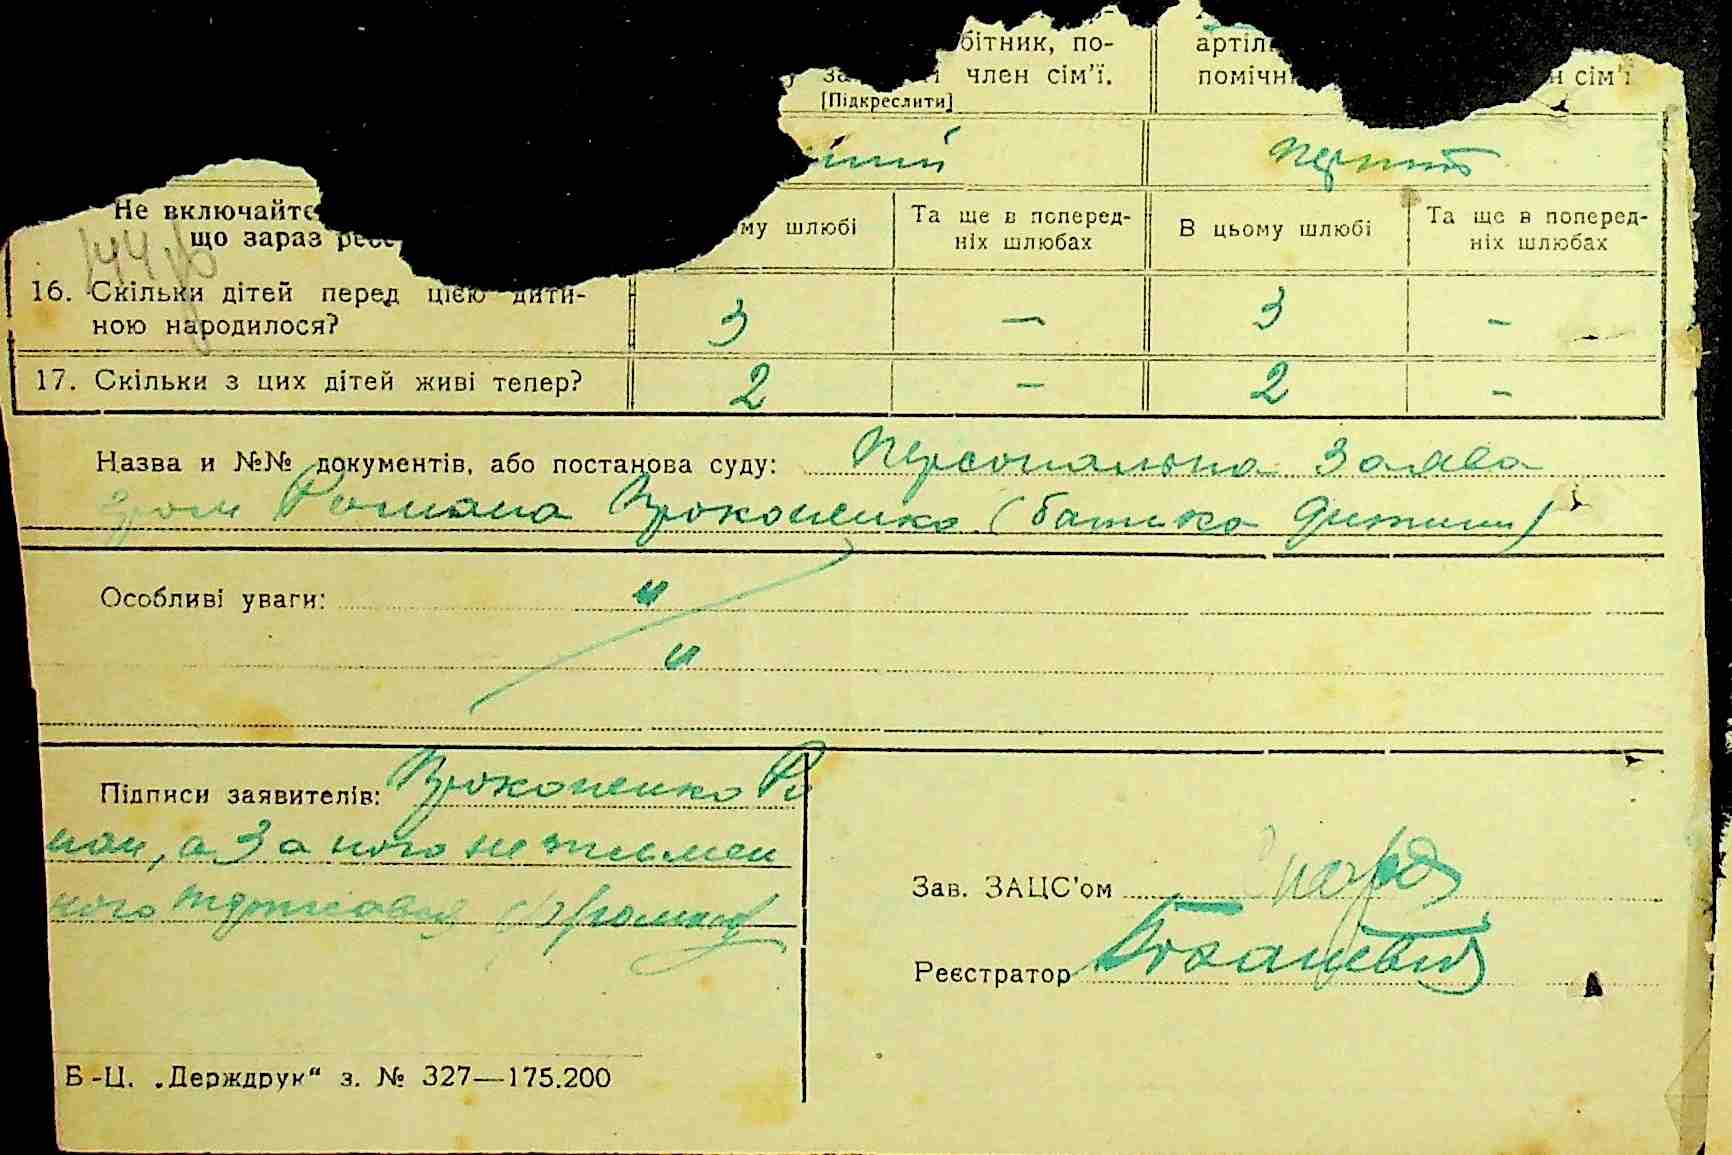 бітник, по- артіл
член сім'ї. помічн сім'ї
[Підкреслити]
Не включайте
що зараз
му шлюбі Та ще в поперед- В цьому шлюбі Та ще в поперед-
ніх шлюбах ніх шлюбах
16. Скільки дітей перед цією дити-
ною народилося? 3 — 3 -
17. Скільки з цих дітей живі тепер? 2 — 2 -
Назва и №№ документів, або постанова суду: Персональна заява
гром Романа Прокопенко (батька дитини)
Особливі уваги: "
"
Підписи заявителів: Прокопенко Ро
ман, а за ного неписмен
ного
Зав. ЗАЦС'ом
Реєстратор
Б-Ц. „Держдрук“ з. № 327—175.200